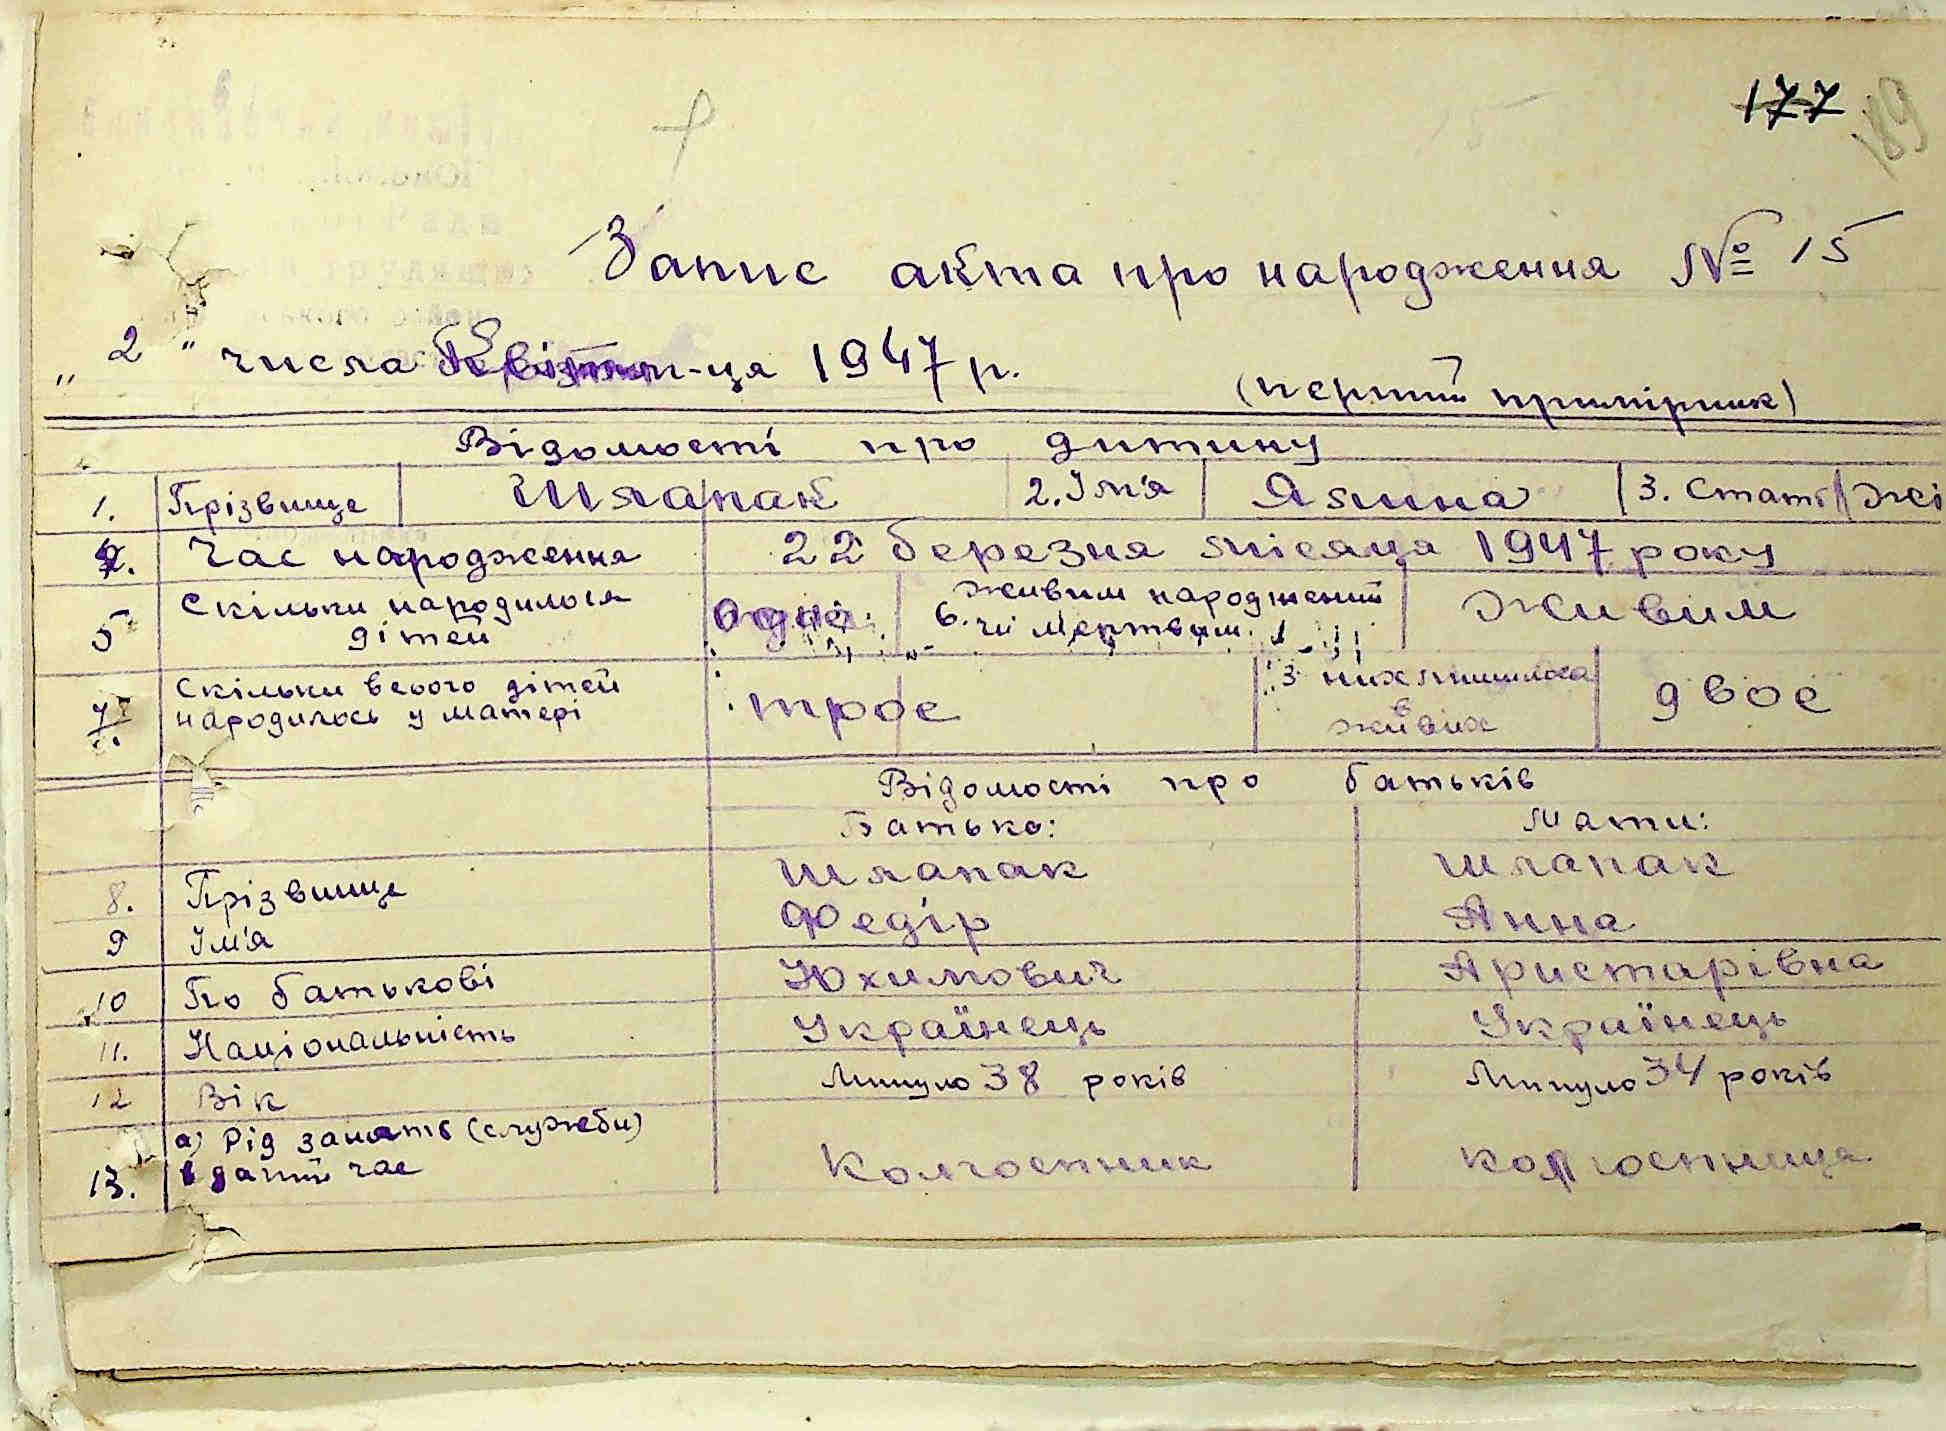 177 189
Запис акта про народження № 15
„ 2 " числа Квітня м-ця 1947 р.
(перший примірник)
Відомості про дитину
1. Прізвище Шлапак 2. Ім'я Яніна 3. Стать Жі
4. Час народження 22 березня місяця 1947 року
5 Скільки народилося дітей одна 6. Живим народжений чи мертвим Живим
7. Скільки всього дітей народилось у матері троє З них лишилося в живих двоє
Відомості про батьків
Батько: Мати:
8. Прізвище Шлапак Шлапак
9 Ім'я Федір Анна
10 По батькові Юхимович Аристарівна
11. Національність Українець Українець
12 Вік Минуло 38 років Минуло 34 років
13. а) Рід занять (служби) в даний час Колгоспник колгоспниця